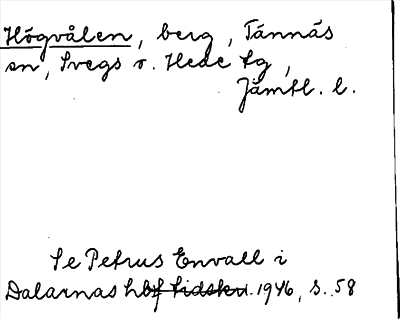 Högvålen, berg, Tännäs
sn, Svegs o. Hede tg,
Jämtl. l.
Se Petrus Envall i
Dalarnas hbf tidskr. 1946, s. 58